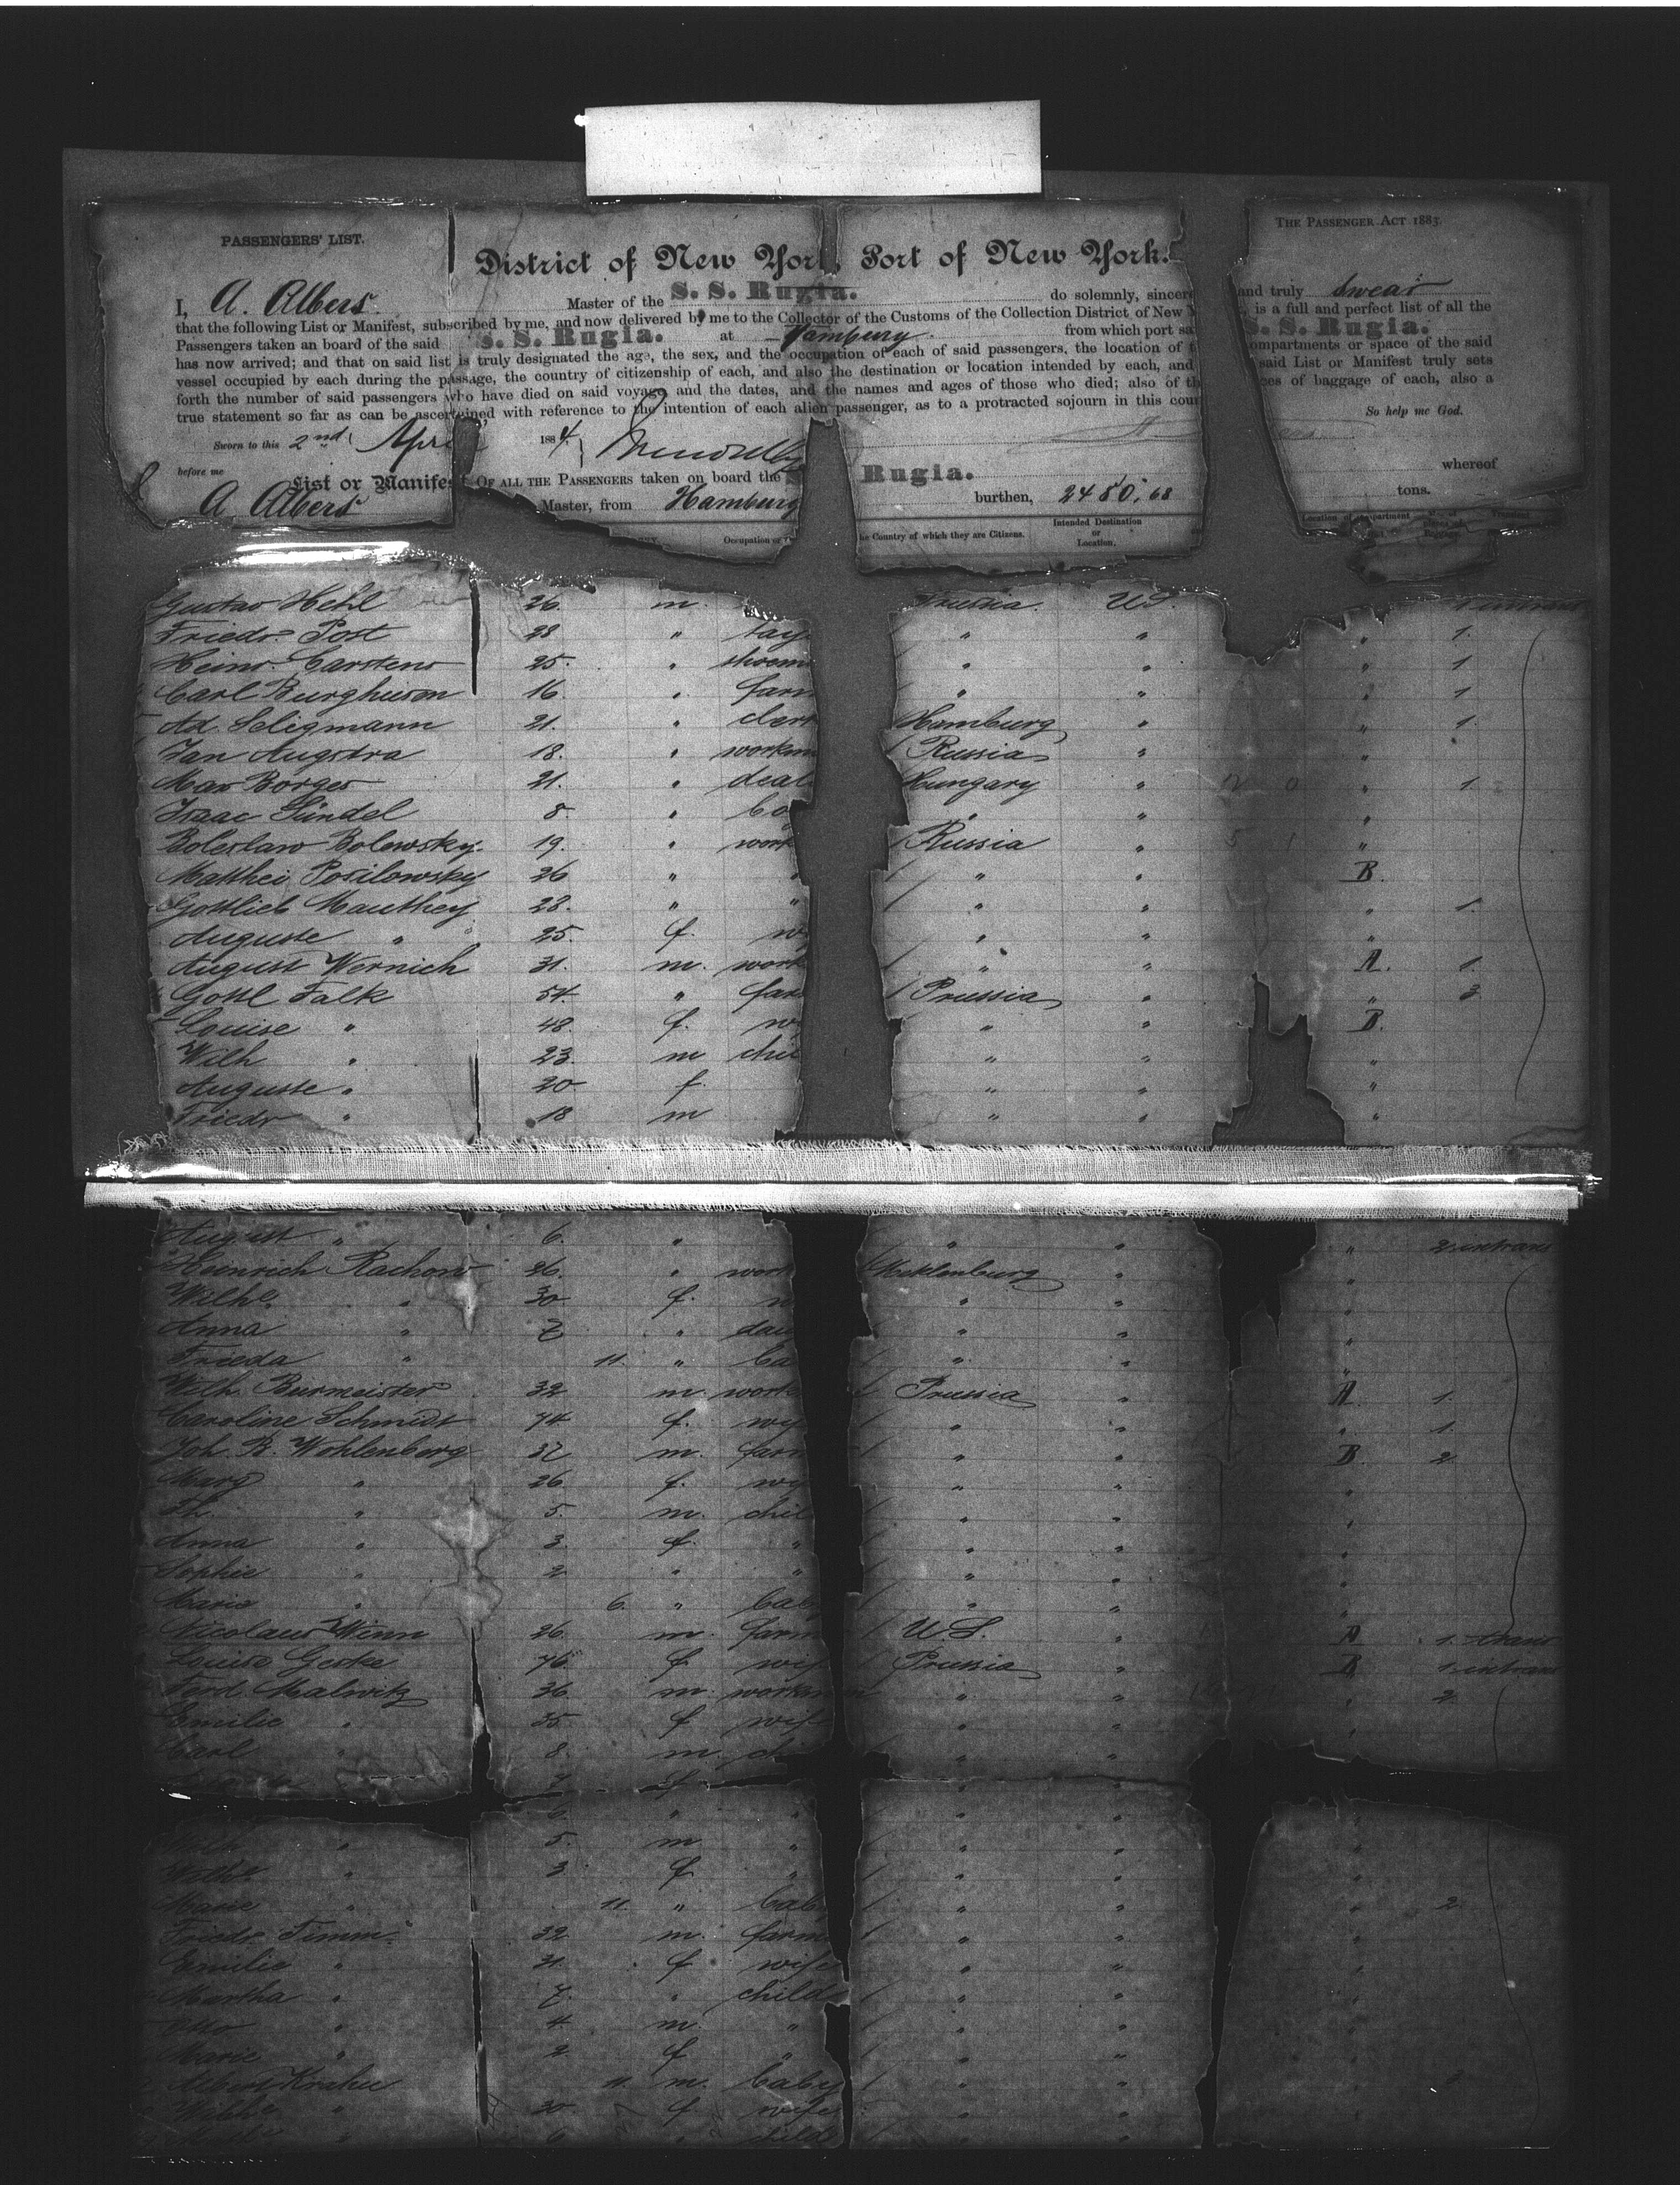 PASSENGERS' LIST.
THE PASSENGER ACT 1883.
District of New York, Port of New York.
I, A. Albers Master of the S. S. Rugia. do solemnly, sincere and truly swear
that the following List or Manifest, subscribed by me, and now delivered by me to the Collector of the Customs of the Collection District of New is a full and perfect list of all the
Passengers taken on board of the said S. S. Rugia. at Hamburg from which port sa S. S. Rugia.
has now arrived; and that on said list is truly designated the age, the sex, and the occupation of each of said passengers, the location of ompartments or space of the said
vessel occupied by each during the passage, the country of citizenship of each, and also the destination or location intended by each, and said List or Manifest truly sets
forth the number of said passengers who have died on said voyage, and the dates, and the names and ages of those who died; also of th ces of baggage of each, also a
true statement so far as can be ascertained with reference to the intention of each alien passenger, as to a protracted sojourn in this coun So help me God.
Sworn to this 2nd April 1884
before me
List or Manifest OF ALL THE PASSENGERS taken on board the Rugia. whereof
A Albers Master, from Hamburg burthen, 2480,68 tons.
Occupation or the Country of which they are Citizens. Intended Destination or Location.
Gustav Hehl 26. m. Prussia. U.S. 1 intrans
Friedr. Post 28 " tay " " " 1.
Heinr. Carstens 25. " shoem " " " 1
Carl Burghuson 16. " farm " " " 1
Ad. Seligmann 21. " clerk Hamburg " " 1.
Jan Augstra 18. " workm Russia " "
Max Borges 21. " deal Hungary " " 1.
Isaac Sündel 8. " bo " " "
Boleslaw Bolewsky. 19. " work Russia " "
Matthei Posilowsky 26 " " " " B.
Gottlieb Mauthey 28. " " " " " 1.
Auguste " 25. f. w " " "
August Wernich 31. m. work " " A. 1.
Gottl Falk 54. " far Prussia " " 3
Louise " 48. f. w " " B.
Wilh " 23. m chil " " "
Auguste " 20 f. " " "
Friedr " 18 m " " "
August " 6. " " " " 2 intrans
Heinrich Rachow 26. " work Meklenburg " "
Wilhe. " 30 f. w " " "
Anna " 7 " dau " " "
Frieda " 11. " ba " " "
Wilh. Burmeister 32 m. work Prussia " A. 1.
Caroline Schmidt 74. f. wif " " " 1.
Joh. R. Wohlenberg 32 m. farm " " B. 2
Marg " 26 f. wif " " "
Th. " 5. m. chil " " "
Anna " 3. f. " " " "
Sophie " 2. " " " " "
Marie " 6. " bab " " "
Nicolaus Winn 26. m. farm U.S. " A 1. trans
Louise Geske 76. f wif Prussia " B 1 intrans
Ferd. Malwitz 36 m. workman " " " 2
Emilie " 35 f wif " " "
Carl " 8. m. ch " " "
7 f " "
6. " " " " "
" 5. m. " " " "
Wilhe " 3. f. " " " "
Marie " 11. " bab " " " 2.
Friedr. Timm 32 m. farm " " "
Emilie " 31. f wife " " "
Martha " 7. " child " " "
Otto " 4. m. " " " "
Marie " 2. f " " " "
Albert Krahn 11. m. baby " "
Wilhe " 30. f wife " "
" 6 " child " "